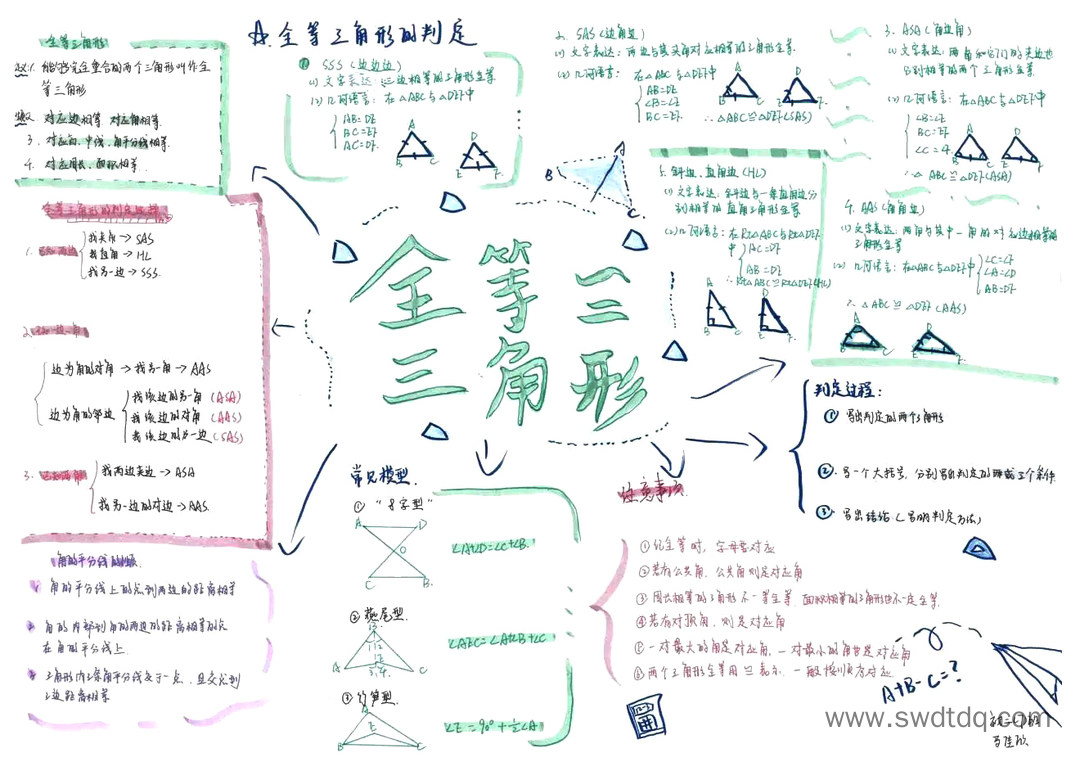 全等三角形
1. 能够完全重合的两个三角形叫作全
等三角形
对应边相等 对应角相等.
3. 对应高、中线、角平分线相等.
4. 对应周长、面积相等.
A. 全等三角形的判定
① SSS (边边边)
(1) 文字表达: 三边相等的三角形全等.
(2) 几何语言: 在△ABC与△DEF中
AB=DE
BC=EF
AC=DF.
A
B
C
D
E
F
2. SAS (边角边)
(1) 文字表达: 两边与其夹角对应相等的三角形全等.
(2) 几何语言: 在△ABC与△DEF中
AB=DE
∠B=∠E
BC=EF.
∴△ABC≌△DEF(SAS)
A
B
C
D
E
F.
3. ASA (角边角)
(1) 文字表达: 两角和它们的夹边也
分别相等的两个三角形全等.
(2) 几何语言: 在△ABC与△DEF中
∠B=∠E
BC=EF
∴△ABC≌△DEF(ASA)
A
B
C
D
E
F.
4. AAS (角角边)
(1) 文字表达: 两角与其中一角的对边相等的
三角形全等
(2) 几何语言: 在△ABC与△DEF中
∠C=∠F
∠A=∠D
AB=DE
∴△ABC≌△DEF(AAS)
A
B
C
D
E
F.
5. 斜边、直角边 (HL)
(1) 文字表达: 斜边与一条直角边分
别相等的直角三角形全等
(2) 几何语言: 在Rt△ABC与Rt△DEF
中
AC=DF
AB=DE
∴Rt△ABC≌Rt△DEF(HL)
A
B
C
D
E
F.
A
B
C
全等三角形的判定思路
1. 已知两边
找夹角→SAS
找直角→HL
找另一边→SSS.
2. 已知一边一角
边为角的对角→找另一角→AAS
边为角的邻边
找该边的另一角 (ASA)
找该边的对角 (AAS)
找该边的另一边 (SAS)
3. 已知两角
找两边夹边→ASA
找另一边的对边→AAS.
全等三
三角形
角的平分线的性质
角的平分线上的点到两边的距离相等
角的内部到角的两边的距离相等的点
在角的平分线上.
三角形内三条角平分线交于一点, 且交点到
三边距离相等
常见模型.
① “8字型”
A
D
O
C
B.
∠A+∠D=∠C+∠B.
② 燕尾型
A
C
∠AEC=∠A+∠B+∠C
③
A
E
B
C
∠E=90°+½∠A
注意事项.
① 证全等时, 字母要对应
② 若有公共角, 公共角则是对应角
③ 周长相等的三角形不一定全等, 面积相等的三角形也不一定全等.
④ 若有对顶角, 则是对应角
⑤ 一对最大的角是对应角, 一对最小的角也是对应角
⑥ 两个三角形全等用≌表示, 一般按顺序对应.
判定过程:
① 写出判定的两个三角形
② 写一个大括号, 分别写出判定的两或三个条件.
③ 写出结论 (写明判定方法)
A+B-C=?
www.swdtdq.com